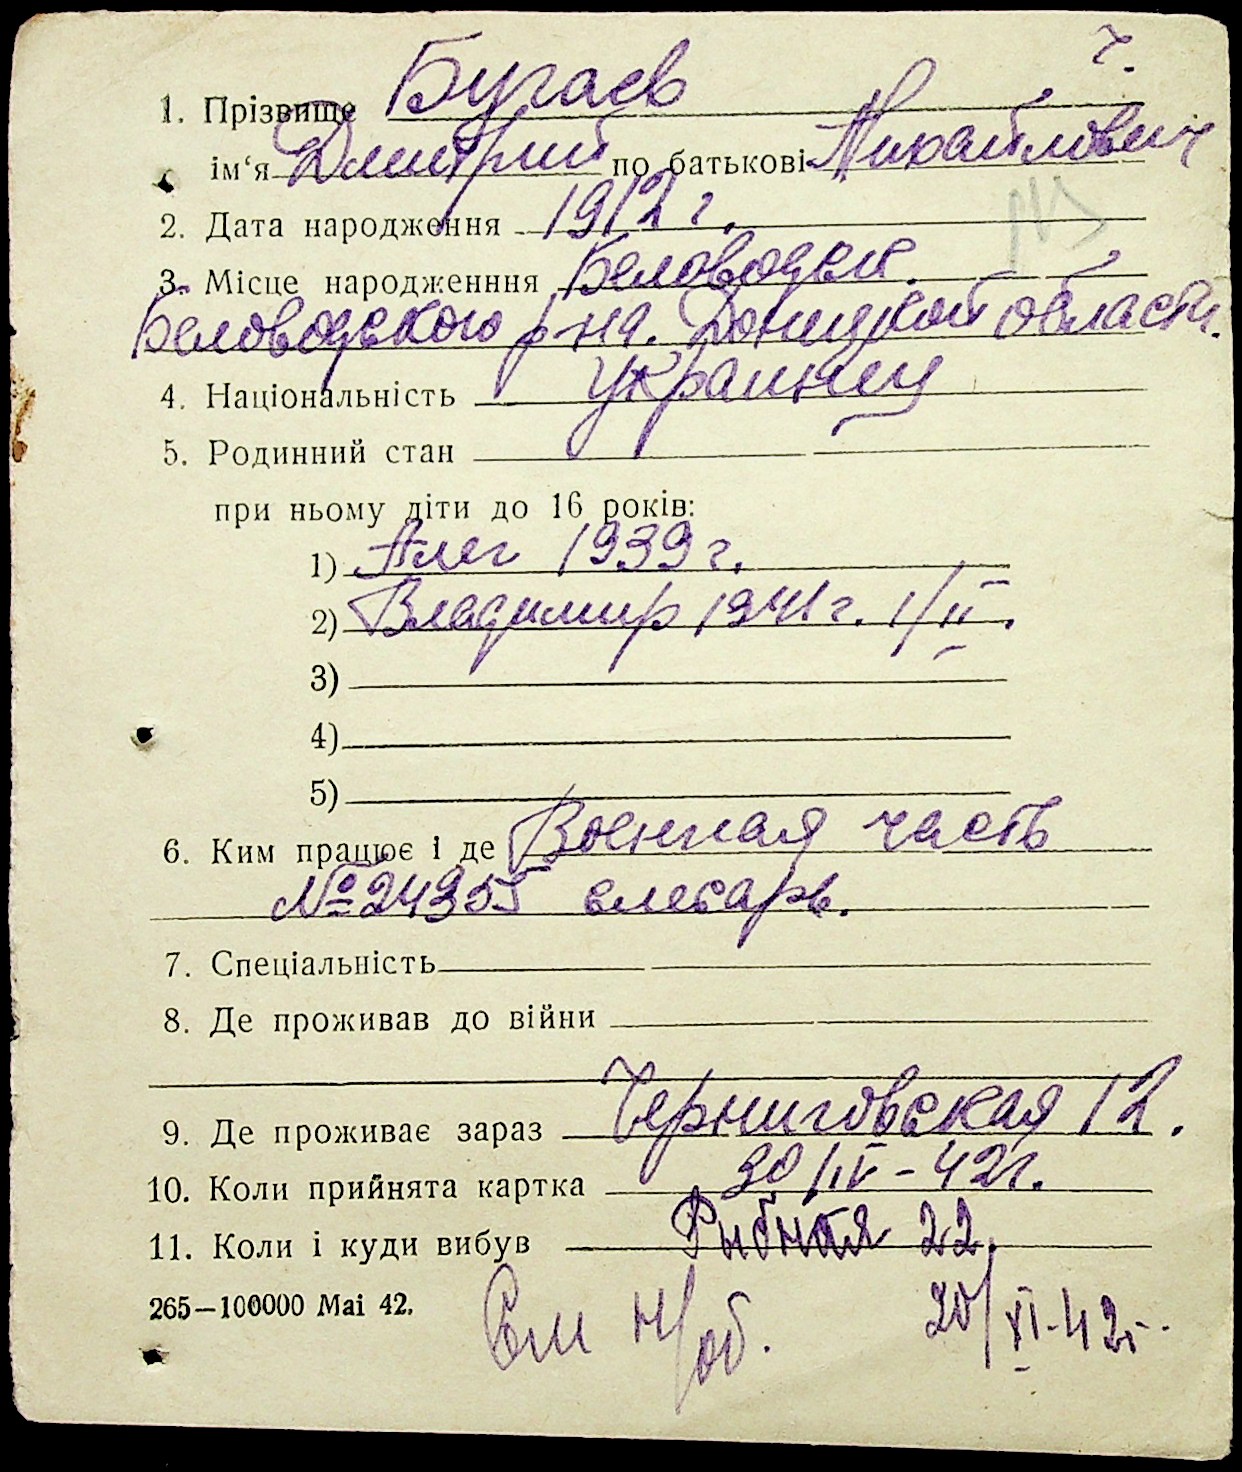 ч.
1. Прізвище Бугаев
ім‘я Дмитрий по батькові Михайлович
2. Дата народження 1912 г.
3. Місце народженння Беловодск.
Беловодского р-на. Донецкой области.
4. Національність Украинец
5. Родинний стан
при ньому діти до 16 років:
1) Алег 1939 г.
2) Владимир 1941 г. 1/II.
3)
4)
5)
6. Ким працює і де Военная часть
№ 24955 слесарь.
7. Спеціальність
8. Де проживав до війни
9. Де проживає зараз Черниговская 12.
10. Коли прийнята картка 30/IV-42г.
11. Коли і куди вибув Рыбная 22.
265—100000 Mai 42.
См н/об. 20/XI-42г.